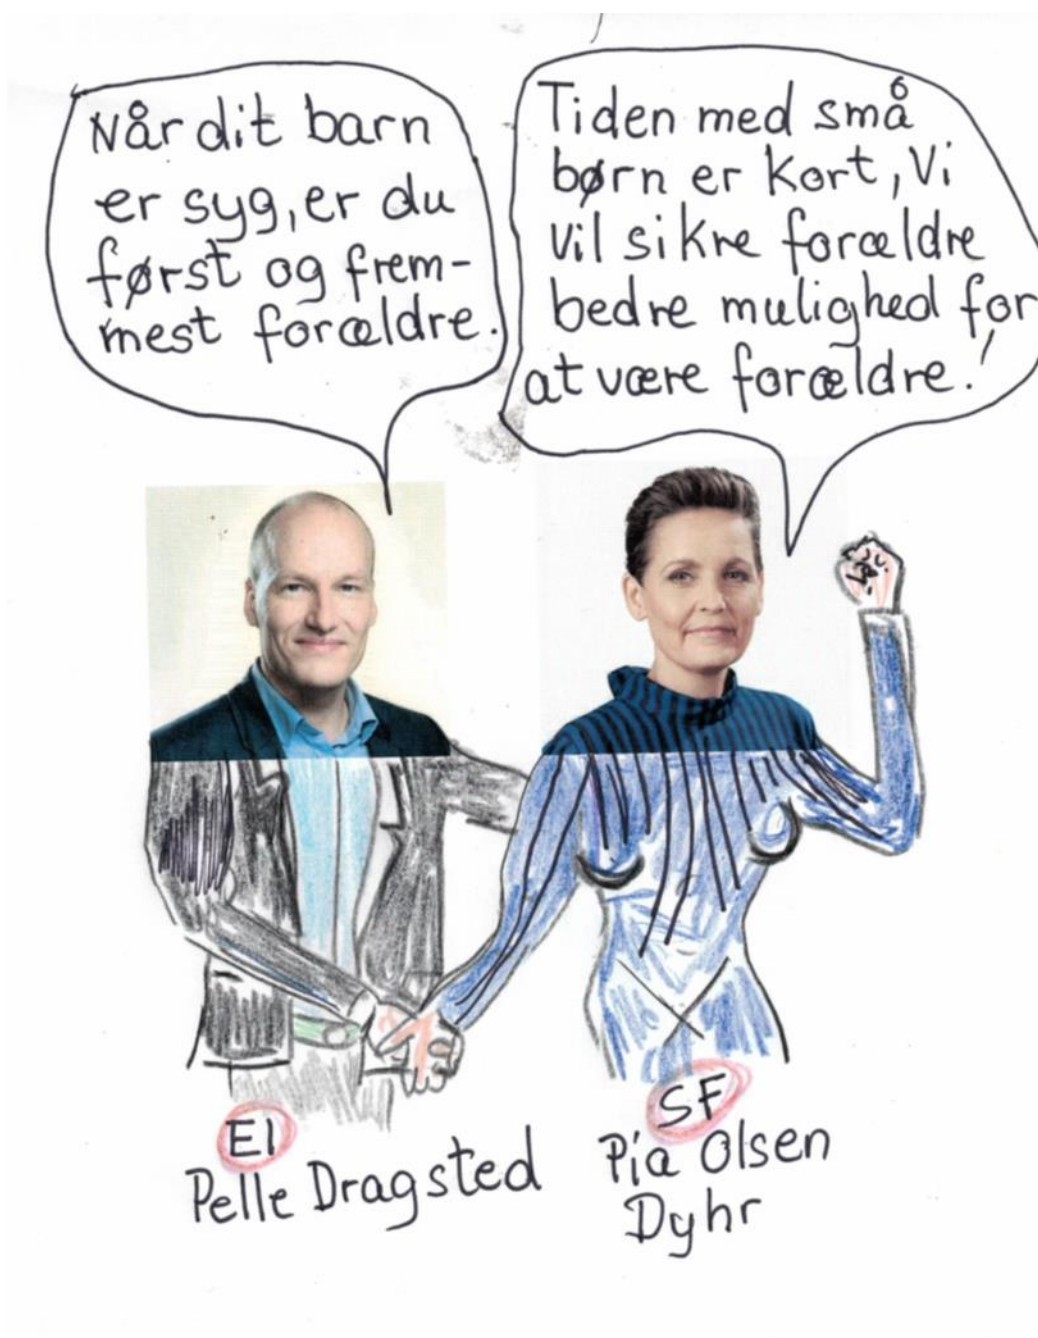 Når dit barn
er syg, er du
først og frem-
mest forældre.
Tiden med små
børn er kort, Vi
vil sikre forældre
bedre mulighed for
at være forældre.!
El
Pelle Dragsted
SF
Pia Olsen
Dyhr